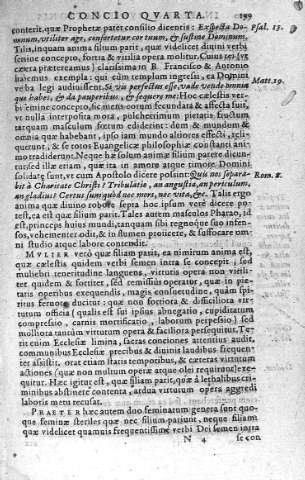 CONCIO QVARTA. 199
conterit, quæ Prophetæ pater consilio dicentis: Expecta Do- Psal. 15.
minum, viriliter age, confortetur cor tuum, & sustine Dominum.
Talis, inquam anima filium parit, quæ videlicet divini verbi
semine concepto, fortia & virilia opera molitur. Cuius rei (ut
cætera prætereamus) clarissima in B. Francisco & Antonio
habemus exempla: qui cùm templum ingressi, ea Domini
verba legi audiuissent. Si vis perfectus esse, vade vende omnia Matt. 19.
quæ habes, & da pauperibus, & sequere me: Hoc cælestis ver-
bi semine concepto, sic mens eorum fecundata & affecta fuit,
vt nulla interposita mora, pulcherrimum pietatis fructum
tanquam masculum fœtum ediderint: dum & mundum &
omnia quæ habebant, ipso iam mundo altiores effecti, relin-
querent, & se totos Euangelicæ philosophiæ constanti ani-
mo tradiderint. Neque hæ solùm animæ filium parere dicun-
tur, sed illæ etiam, quæ ita in amore atque timore Domini
solidatæ sunt, vt cum Apostolo dicere possint: Quis nos separa- Rom. 8.
bit à Charitate Christi? Tribulatio, an angustia, an periculum,
an gladius? Certus sum quòd nec mors, nec vita, &c. Talis ergo
anima quæ diuino robore septa hoc ipsum verè dicere po-
test, ea est quæ filium parit. Tales autem masculos Pharao, id
est, princeps huius mundi, tanquam sibi regnoque suo infen-
sos, vehementer odit, & in flumen proiicere, & suffocare om-
ni studio atque labore contendit.
MVLIER verò quæ filiam parit, ea nimirum anima est,
quæ cælestis quidem verbi semen intra se concepit: sed
muliebri teneritudine languens, virtutis opera non virili-
ter quidem & fortiter, sed remissius operatur, quæ in pie-
tatis operibus exequendis, magis consuetudine, quàm spi-
ritus feruore ducitur: quæ non fortiora & difficiliora vir-
tutum officia (qualis est sui ipsius abnegatio, cupiditatum
compressio, carnis mortificatio, laborum perpessio) sed
molliora tantùm virtutum opera & faciliora persequitur. Te-
rit enim Ecclesiæ limina, sacras conciones attentius audit,
communibus Ecclesiæ precibus & diuinis laudibus frequen-
ter assistit, orat etiam statis temporibus, & cæteras virtutum
actiones (quæ non multum virtutis atque oleí requirunt) exe-
quitur. Hæc igitur est, quæ filiam parit, quæ à lethalibus cri-
minibus abstinere contenta, ardua virtutum opera aggredi
laboris metu recusat.
PRAETER hæc autem duo seminatum genera sunt quo-
que feminæ steriles quæ nec filium pariunt, neque filiam
quæ videlicet quamuis frequentissimè verbi Dei semen intra
N 4 se con